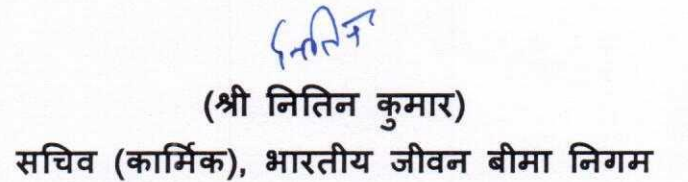 (श्री नितिन कुमार)
सचिव (कार्मिक), भारतीय जीवन बीमा निगम